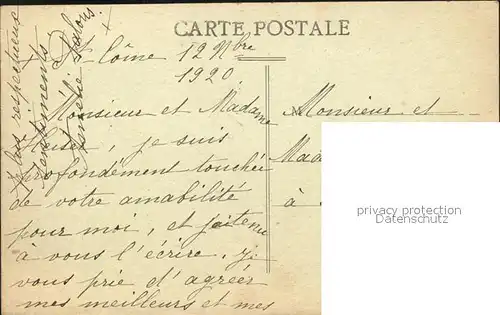 CARTE POSTALE
St Côme 12 Nbre
1920
Monsieur et Madame
je suis
profondément touchée
de votre amabilité
pour moi, et j'ai tenu
à vous l'écrire. Je
vous prie d'agréer
mes meilleurs et mes
plus respectueux
sentiments
Monsieur et
Mad
à
privacy protection
Datenschutz